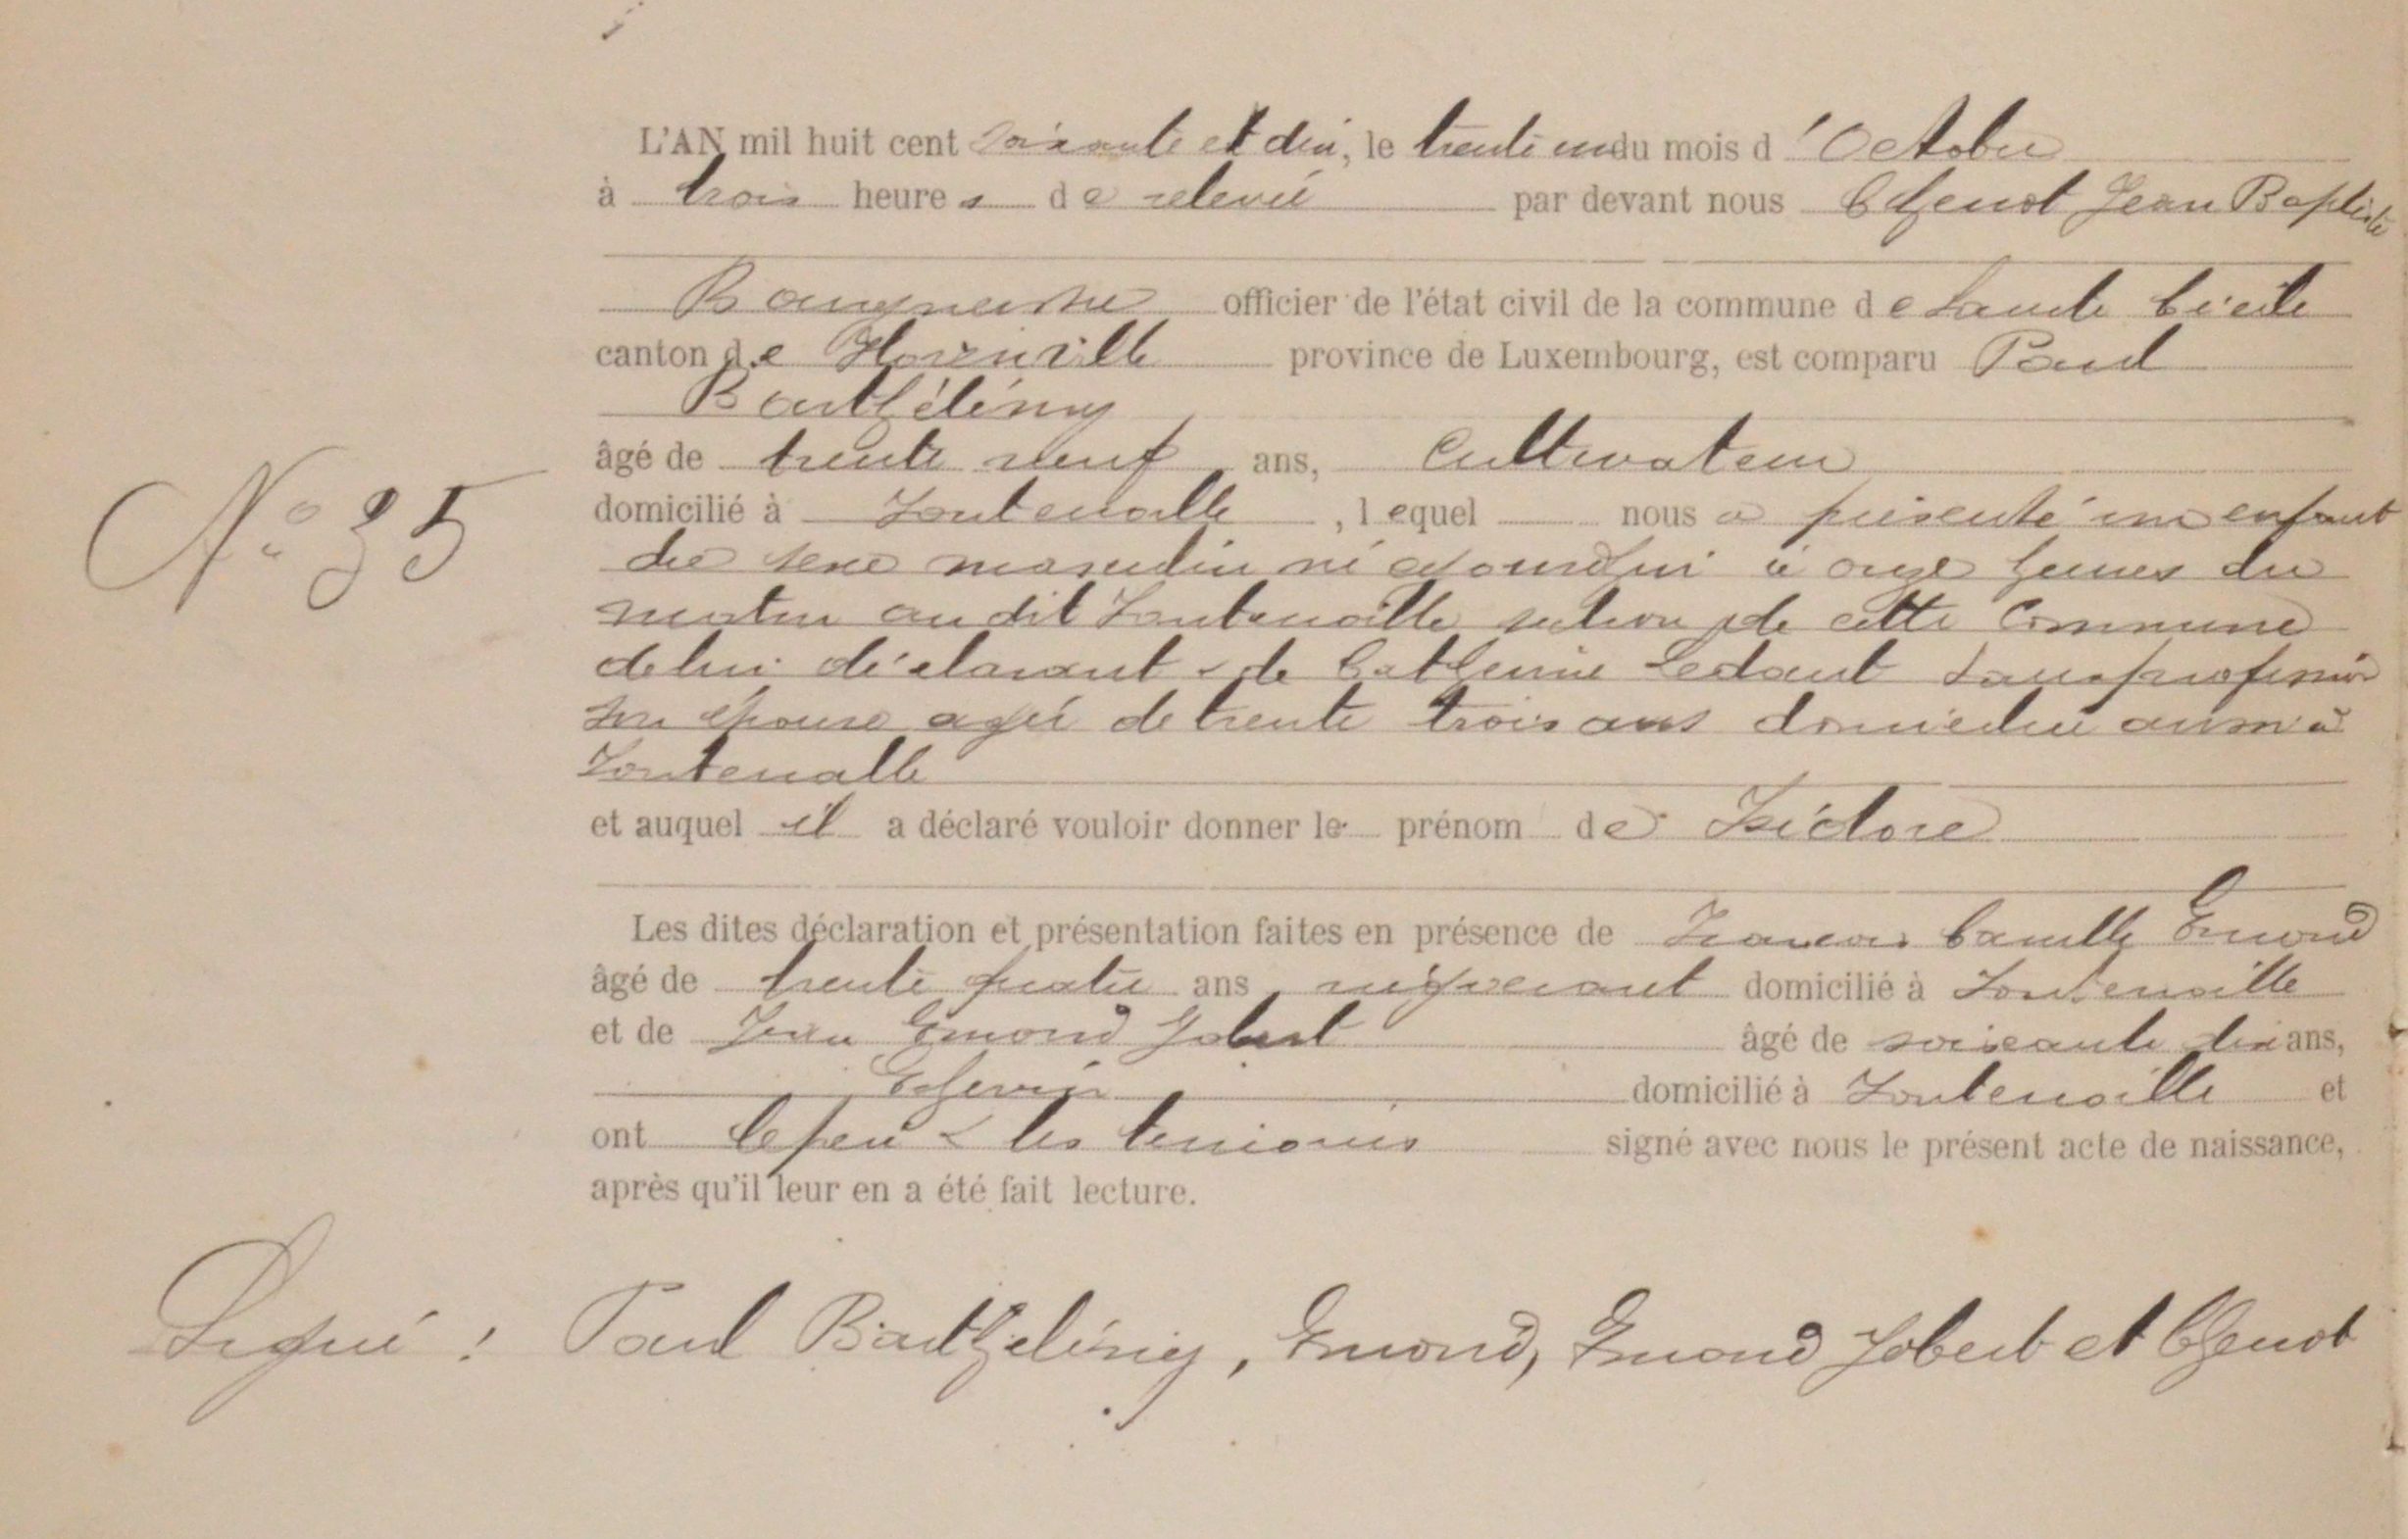 L'AN mil huit cent soixante et dix, le trente un du mois d'Octobre
à trois heures de relevée par devant nous Chenot Jean Baptiste
Bourgmestre officier de l'état civil de la commune de Sainte Cécile
canton de Florenville province de Luxembourg, est comparu Paul
Barthélémy
âgé de trente neuf ans, Cultivateur
domicilié à Fontenoille, lequel nous a présenté un enfant
N° 35
du sexe masculin né ajourdhui à onze heures du
matin au dit Fontenoille section de cette Commune
de lui déclarant & de Catherine Ledant sans profession
son épouse agée de trente trois ans domiciliée aussi à
Fontenaille
et auquel il a déclaré vouloir donner le prénom de Isidore
Les dites déclaration et présentation faites en présence de François Camille Emond
âgé de trente quatre ans, négociant domicilié à Fontenoille
et de Jean Emond Jobert âgé de soixante dix ans,
Echevin domicilié à Fontenoille et
ont le père & les temoins signé avec nous le présent acte de naissance,
après qu'il leur en a été fait lecture.
Signé : Paul Barthelémy, Emond, Emond Jobert et Chenot